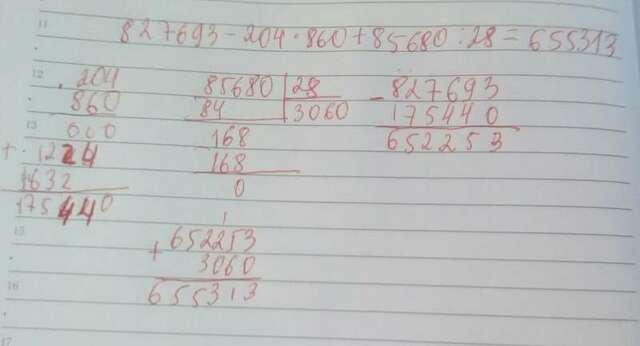 11
827693 - 204 · 860 + 85680 : 28 = 655313
12
. 204
860
13
000
+ 1224
1632
175440
85680 | 28
84 | 3060
168
168
0
- 827693
175440
652253
15
1
+ 652253
3060
655313
16
17